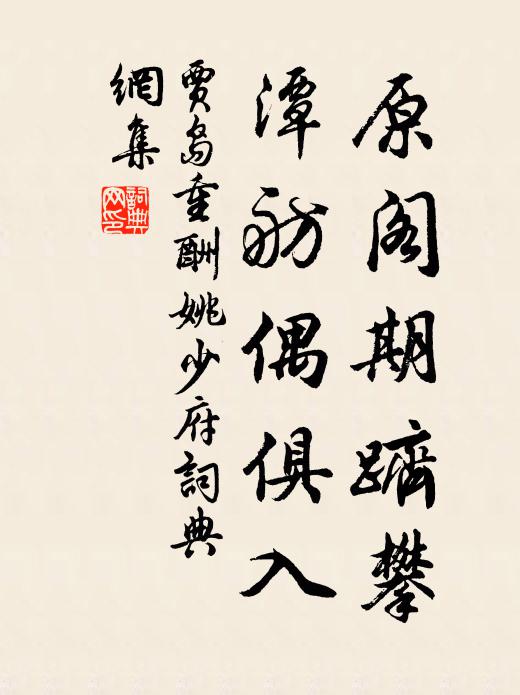 原阁期躋攀
潭舫偶俱入
賈島重酬姚少府詞典
網集
詞典網印